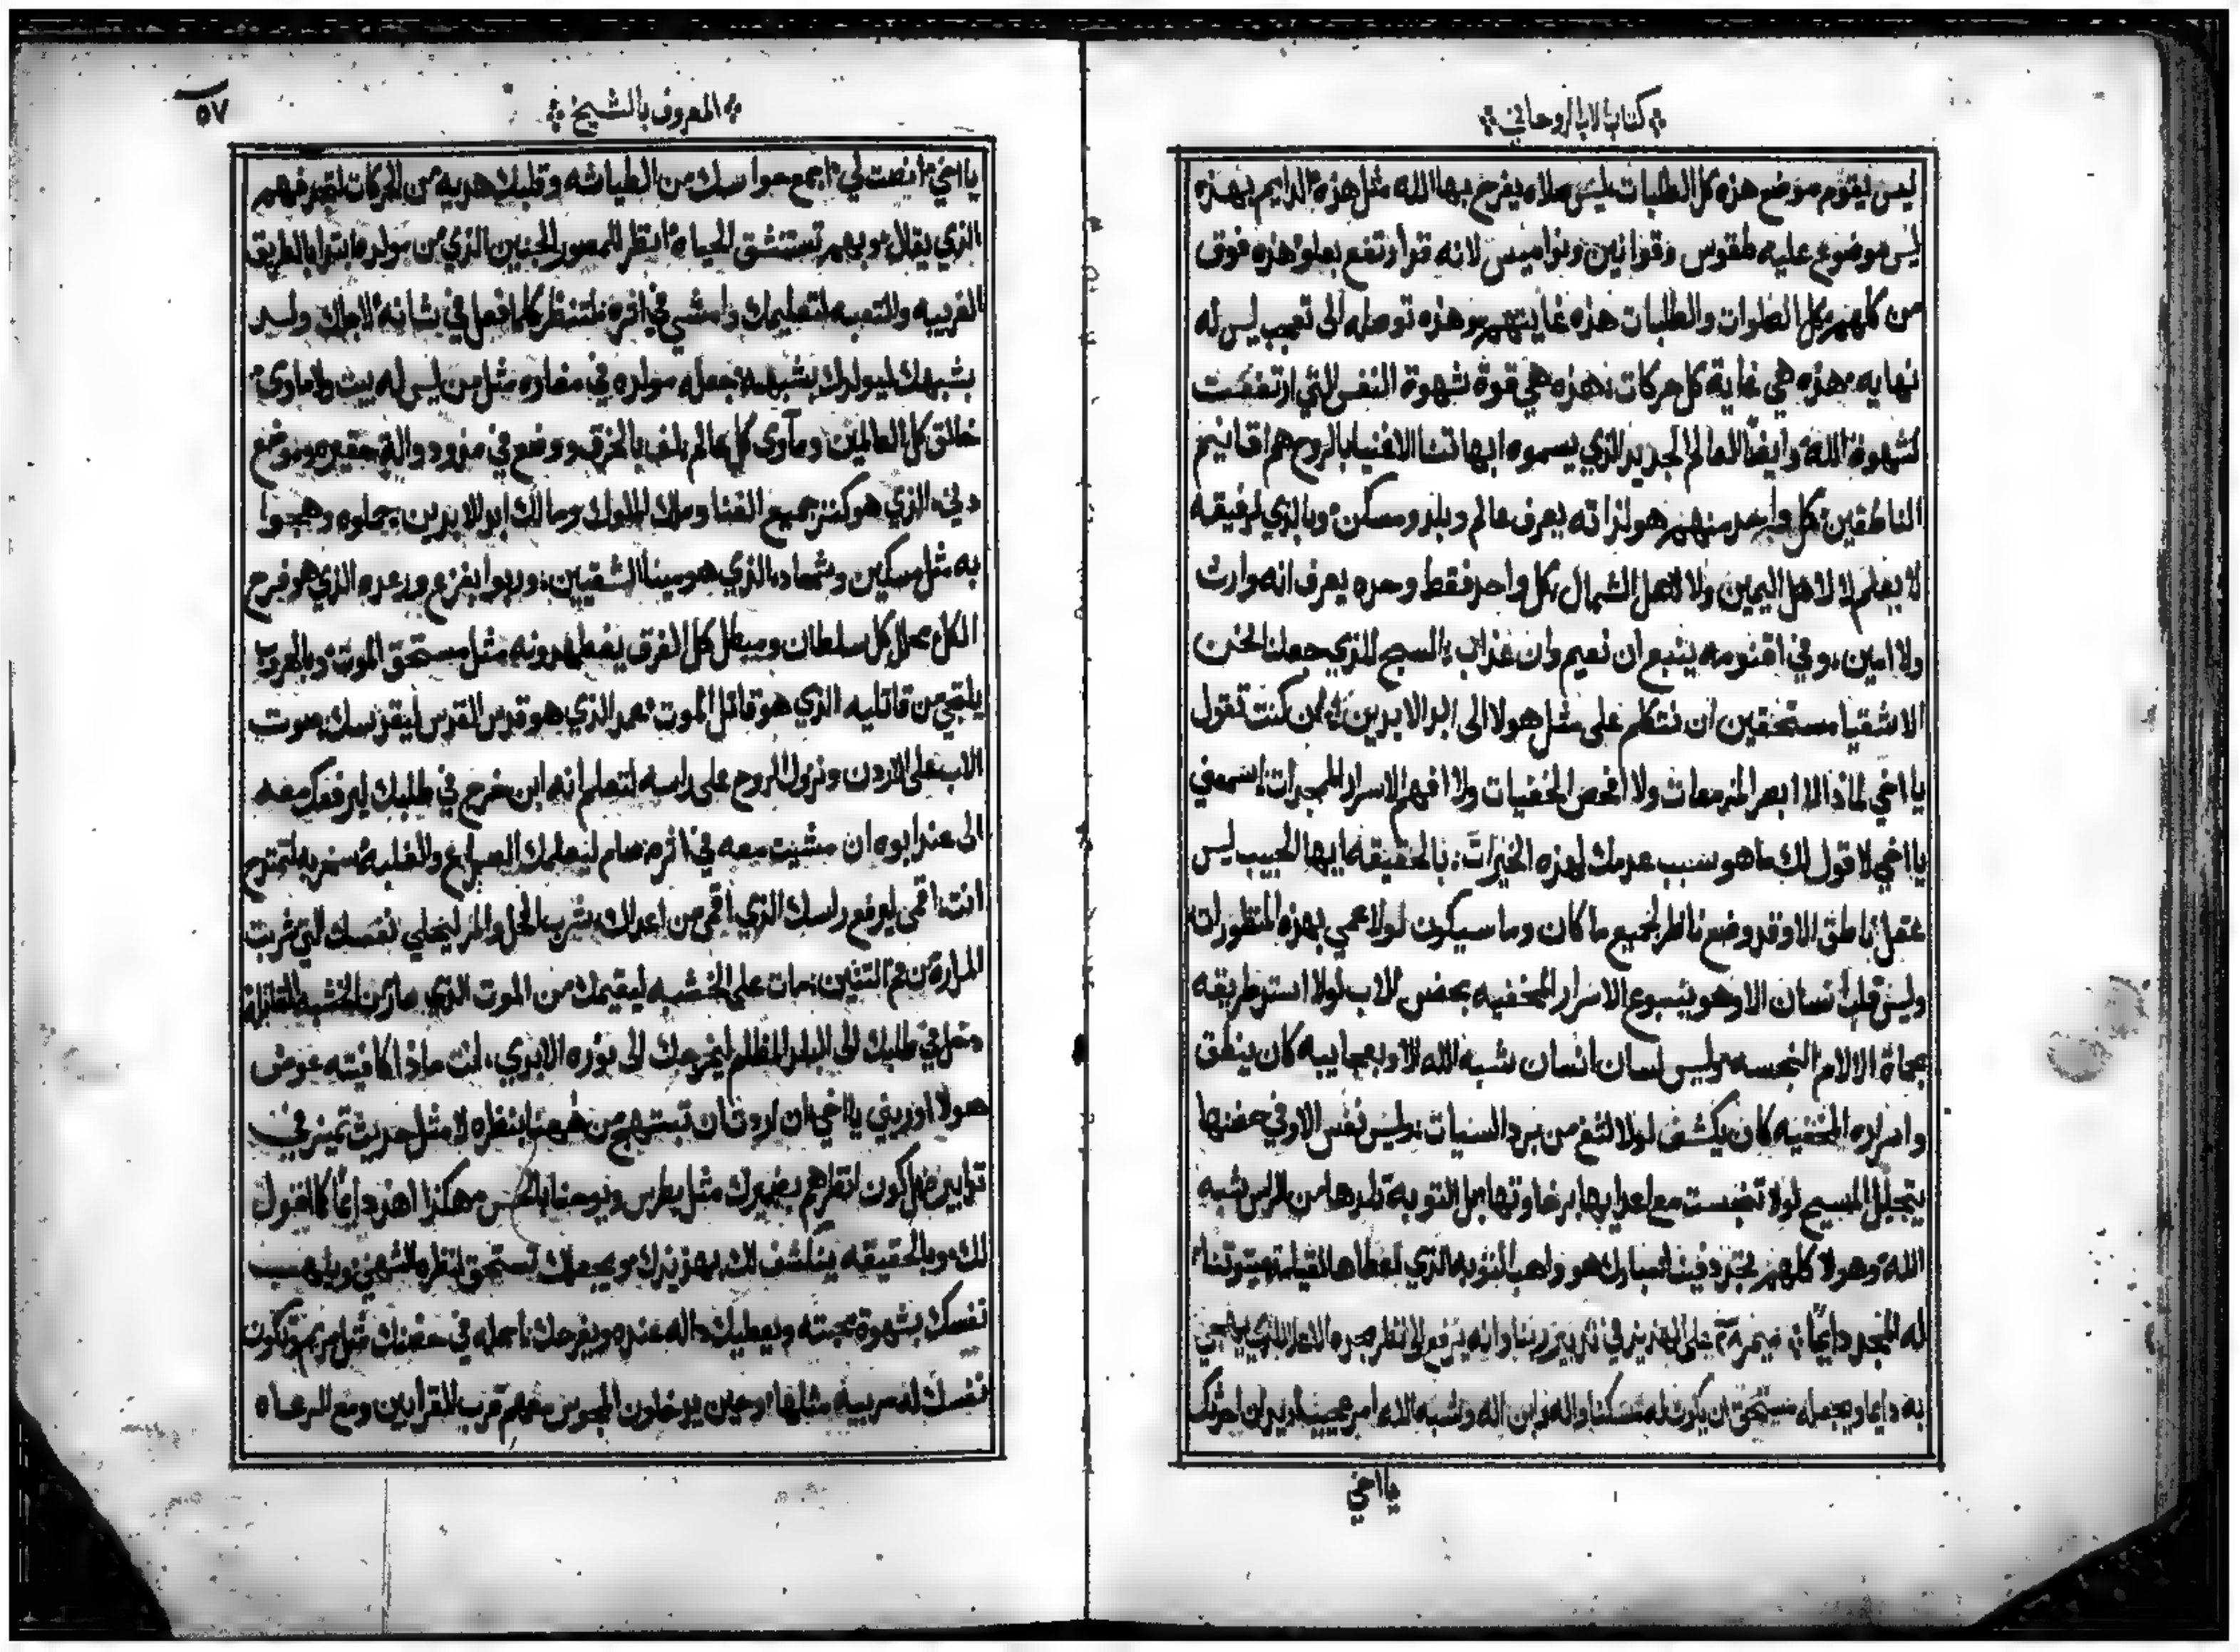 كتاب الاب الروحاني
ليس يقوم موضع هذه كل الطلبات ليس صلاه يفرح بها الله مثل هذه الدايم بهذه
ليس موضوع عليه طقوس وقوانين ونواميس لانه قد ارتفع بعلو هذه فوق
من كلهم كل الصلوات والطلبات هذه غايتهم وهذه توصله الى تعجب ليس له
نهايه هذه هي غاية كل حركات هذه هي قوة شهوة النفس التي ارتفعت
لشهوة الله وايضًا العالم الجديد الذي يسموه ابهاتنا الاغنيا بالروح هم اقانيم
الناطقين كل واحد منهم هو لذاته يعرف عالم وبلد ومسكن وبالذي لرفيقه
لا يعلم لا لاهل اليمين ولا لاهل الشمال كل واحد فقط وحده يعرف انه وارث
ولا امين وفي اقنومه ينبع ان نعيم وان عذاب السبح للذي جعلنا نحن
الاشقيا مستحقين ان نتكلم على مثل هولا الى ابد الابدين ان كنت تقول
يا اخي لماذا انا لا ابصر ولا افحص الخفيات ولا افهم الاسرار الممجدات اسمعني
يا اخي لاقول لك ما هو سبب عدمك لهذه الخيرات بالحقيقه ايها الحبيب ليس
عقل ناطق الا وقد وضع ناظر لجميع ما كان وما سيكون لولا عمي بهذه المنظورات
وليس قلب انسان الا وهو ينبوع الاسرار المخفيه بحضن الاب لولا استد طريقه
بحماة الالام النجسه وليس لسان انسان شبه الله الا وبعجايبه كان ينطق
واسراره المخفيه كان يكشف لولا لثغ من برد السنيات وليس نفس الا وفي حضنها
يتجلى المسيح لولا تنجست مع اعدايها برخاوتها بل التوبة تلدها من الراس شبه
الله وهولا كلهم تجدد فينا مبارك هو واهب التوبه الذي لميتوتنا
له المجد دايمًا على الهذيذ في تدبير ربنا وانه يرفع الى نظر مجد
به دايما ويجعله مستحق ان يكون له مسكنا واله وابن اله وشبه الله
يا اخي
المعروف بالشيخ
٥٧
يا اخي انصت لي اجمع حواسك من الطياشه وقلبك هديه من الحركات لتقدر تفهم
الذي يقال وبهم تستنشق الحياه انظر المصور الجنين الذي من مولده ابتدا بالطريق
الغريبه والتعبه لتعليمك وامشي في اثره لتنظر كلما فعل في شانه لاجلك ولبس
بشبهك ليولدك بشبهه جعل مولده في مغاره مثل من ليس له بيت ولا ماوى
خالق كل العالمين وماوى كل عالم لف بالخرق ووضع في مزود والة حقيره وموضع
دني الذي هو كنز جميع الغنا وملك الملوك ومالك ابد الابدين حملوه وهججوا
به مثل مسكين وشحاد الذي هو مينا الشقيين وربوا بفزع ورعده الذي هو فرح
الكل مبطل كل سلطان ومبطل كل الفرق يضطهدونه مثل مستحق الموت وبالهروب
يلتجي من قاتليه الذي هو قاتل الموت عمد الذي هو قدس القدس ليقدسك صوت
الاب على الاردن ونزول الروح على راسه لتعلم انه ابن خرج في طلبك ليرفعك معه
الى عند ابوه ان مشيت معه في اثره صام ليعلمك الصراع والغلبه سخر به لتحترم
انت اقمى ليرفع راسك الذي اقمى من اعداك شرب الخل والمر ليحلي نفسك التي شربت
المراره من فم التنين مات على الخشبه ليقيمك من الموت الذي صار من الخشبه القاتله
دخل في طلبك الى البلد المظلم ليخرجك الى نوره الابدي انت ماذا كافيته عوض
هولا اوريني يا اخي ان اردت ان تبتهج من هاهنا بنظره لا مثل حديث تميز في
تدابيره بل كون انظرهم بضميرك مثل بطرس ويوحنا بالحس هكذا اهذ دايمًا كما اقول
لك وبالحقيقه ينكشف لك بهذيذك ويجعلك تستحق لنظره الشهي ويلهب
نفسك بشهوة محبته ويعطيك داله عنده ويفرحك باحمله في حضنك مثل مريم وتكون
نفسك له مربيه مثلها وحين يدخلون المجوس معهم قرب القرابين ومع الرعاه